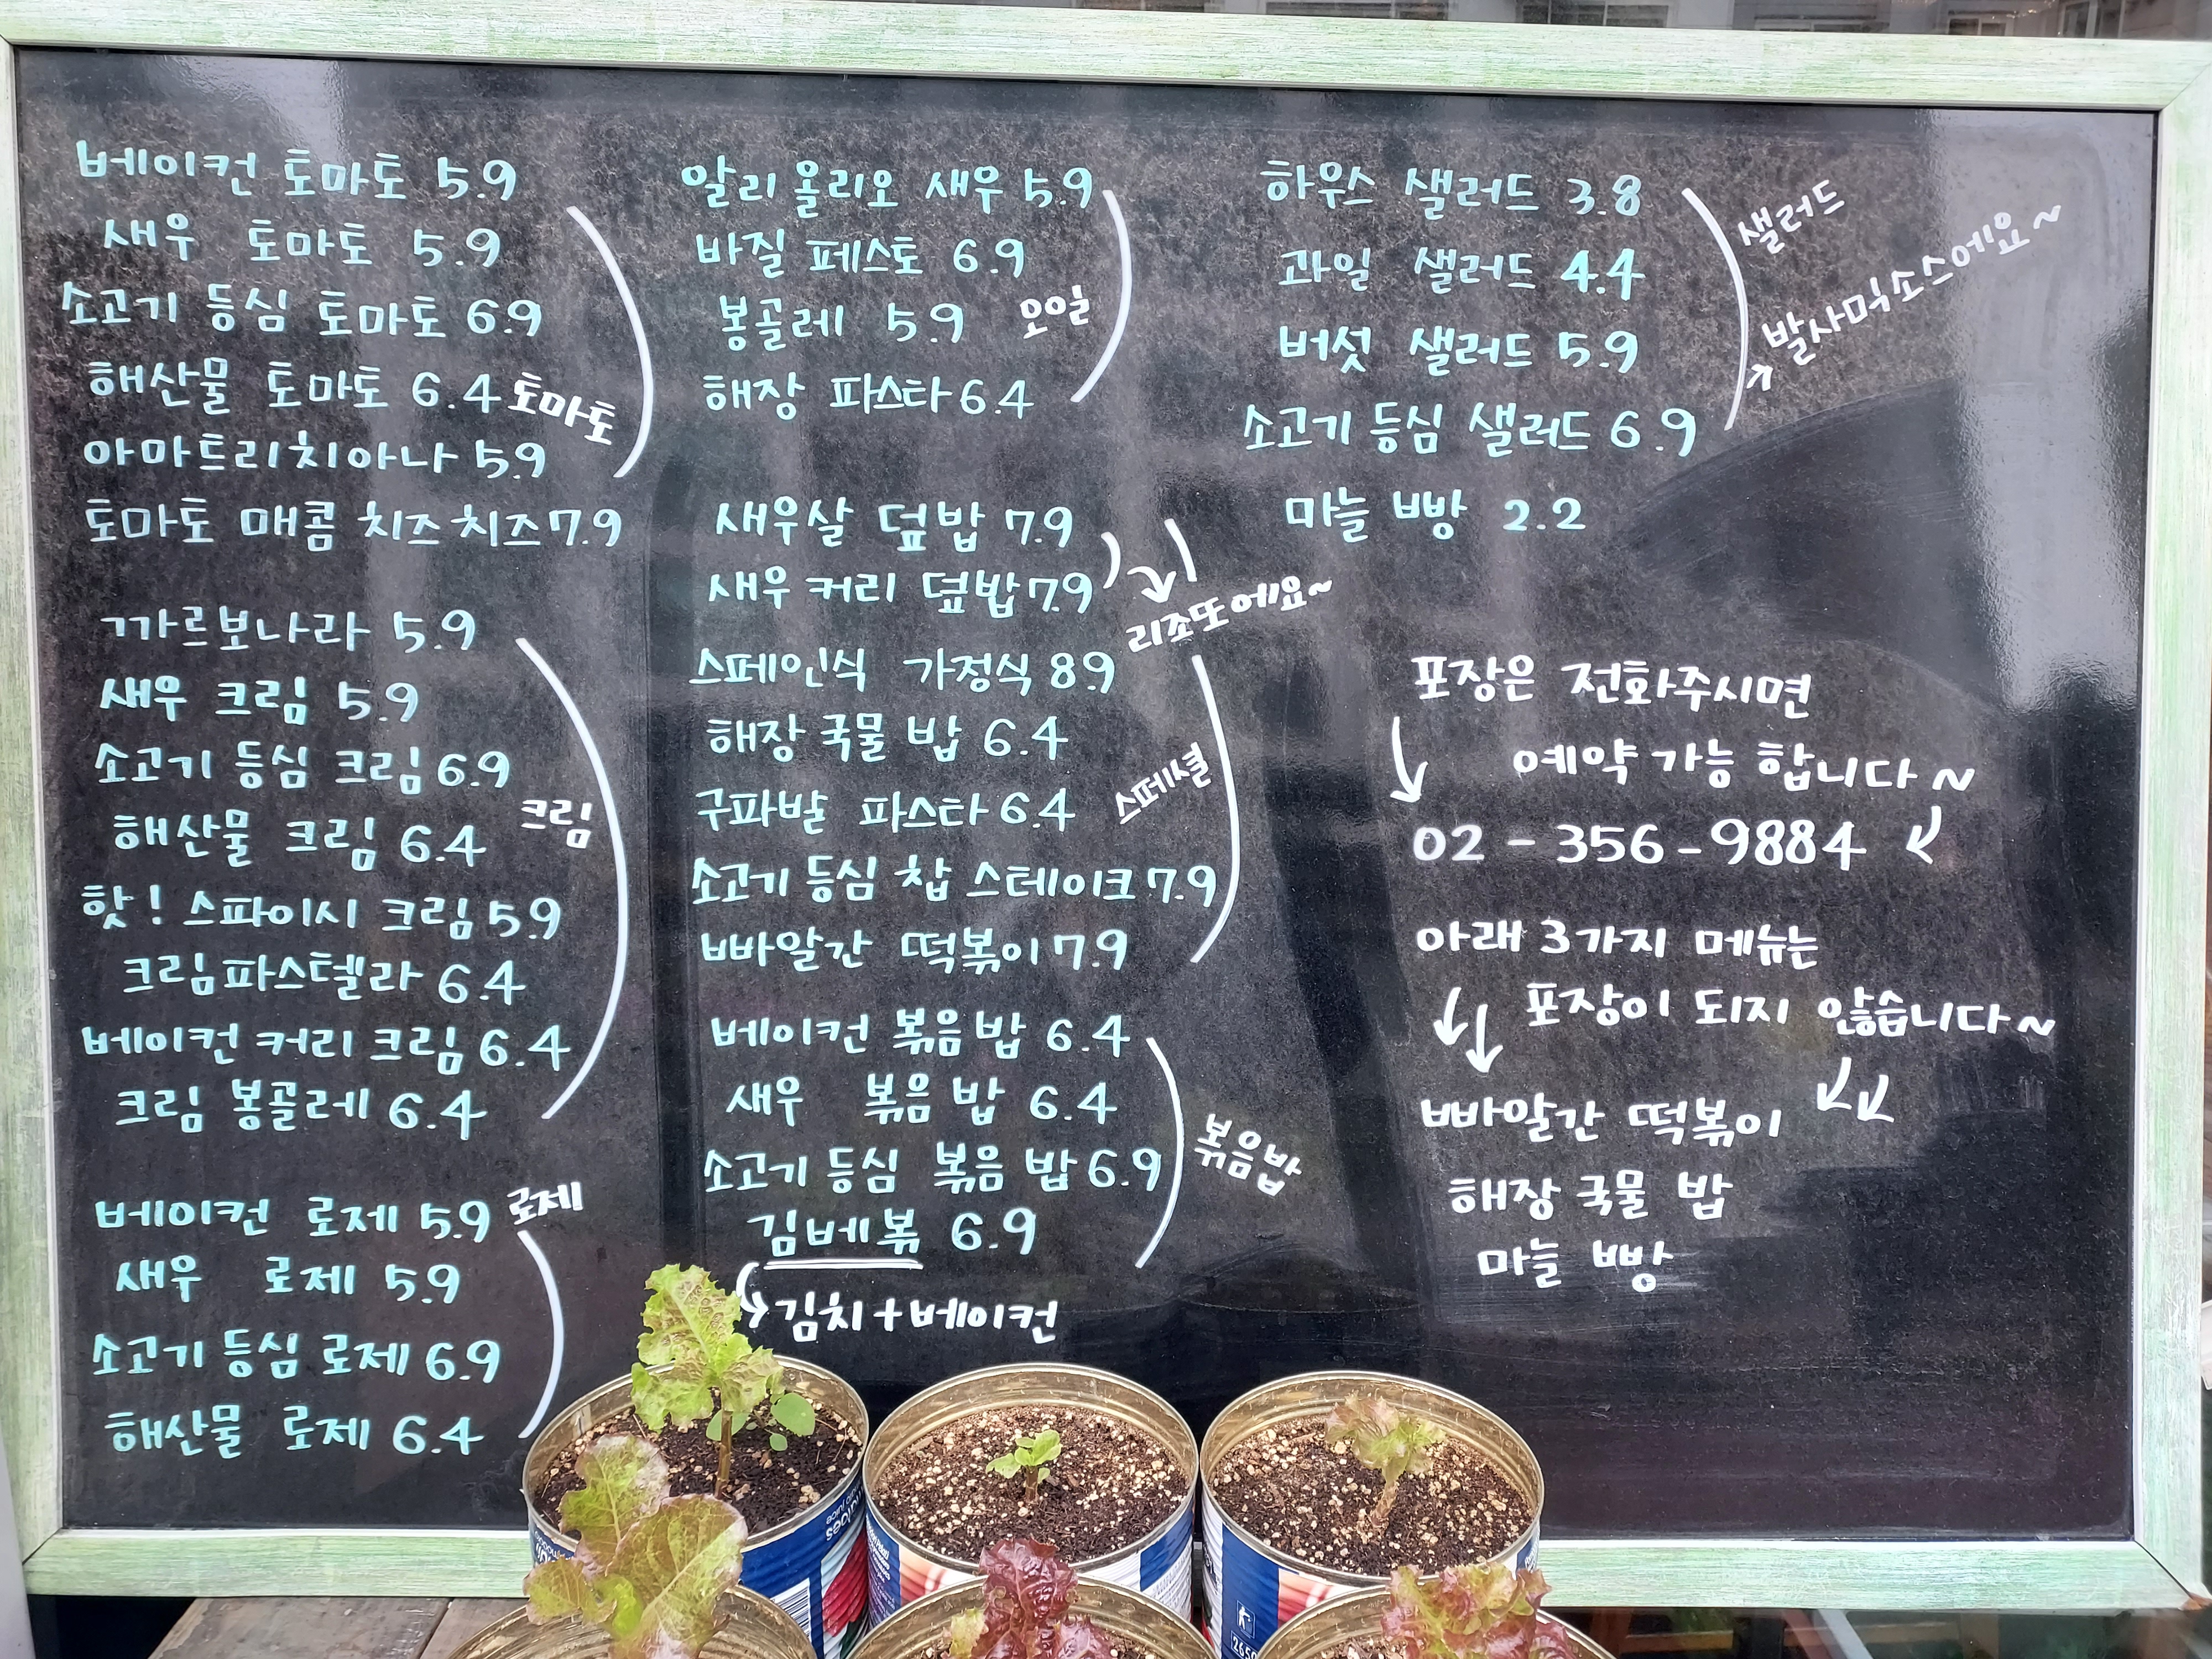 베이컨 토마토 5.9
새우 토마토 5.9
소고기 등심 토마토 6.9
해산물 토마토 6.4
토마토
아마트리치아나 5.9
토마토 매콤 치즈치즈 7.9
까르보나라 5.9
새우 크림 5.9
소고기 등심 크림 6.9
크림
해산물 크림 6.4
핫! 스파이시 크림 5.9
크림파스텔라 6.4
베이컨 커리 크림 6.4
크림 봉골레 6.4
베이컨 로제 5.9
로제
새우 로제 5.9
소고기 등심 로제 6.9
해산물 로제 6.4
알리 올리오 새우 5.9
바질 페스토 6.9
봉골레 5.9
오일
해장 파스타 6.4
새우살 덮밥 7.9
새우 커리 덮밥 7.9
리조또에요~
스페인식 가정식 8.9
해장 국물 밥 6.4
스페셜
구파발 파스타 6.4
소고기 등심 찹 스테이크 7.9
빠알간 떡볶이 7.9
베이컨 볶음밥 6.4
새우 볶음밥 6.4
소고기 등심 볶음밥 6.9
볶음밥
김베볶 6.9
김치+베이컨
하우스 샐러드 3.8
과일 샐러드 4.4
버섯 샐러드 5.9
소고기 등심 샐러드 6.9
샐러드
발사믹소스에요~
마늘 빵 2.2
포장은 전화주시면
예약 가능 합니다~
02-356-9884
아래 3가지 메뉴는
포장이 되지 않습니다~
빠알간 떡볶이
해장 국물 밥
마늘 빵